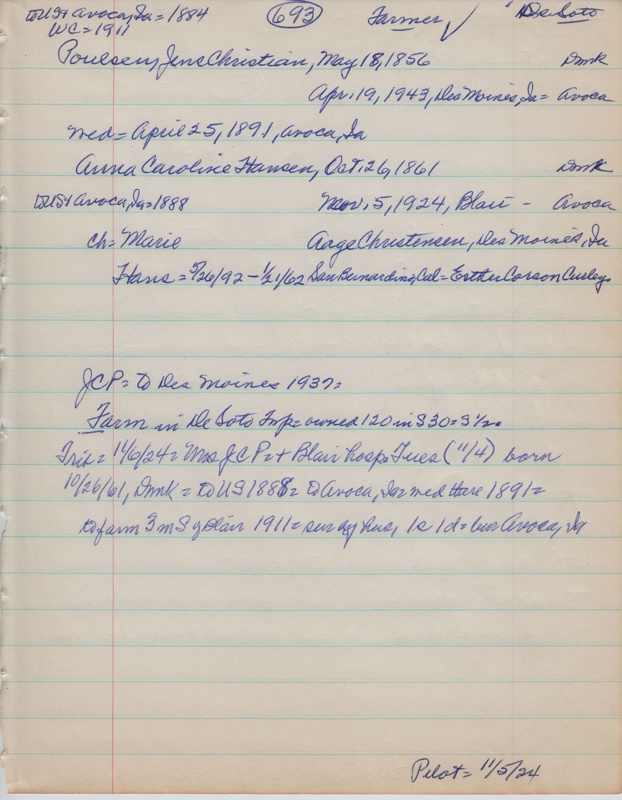 to US + Avoca, Ia = 1884 (693) Farmer ✓ " DeSoto
WC = 1911
Poulsen, Jens Christian, May 18, 1856 Dnmk
Apr. 19, 1943, Des Moines, Ia = Avoca
med = April 25, 1891, Avoca, Ia
Anna Caroline Hansen, Oct. 26, 1861 Dnmk
to US + Avoca, Ia = 1888 Nov. 5, 1924, Blair - Avoca
ch = Marie Aage Christensen, Des Moines, Ia
Hans = 5/26/92 - 1/21/62 San Bernardino, Cal = Esther Corson Curley
JCP = to Des Moines 1937 =
Farm in De Soto Twp = owned 120 in S 30 = S 1/2.
Trib = 11/6/24 = Mrs JCP = + Blair hosp. Tues (11/4) born
10/26/61, Dnmk = to US 1888 = to Avoca, Ia = med there 1891 =
to farm 3 m S of Blair 1911 = surv by hus, 1s 1d = bur Avoca, Ia
Pilot = 11/5/24